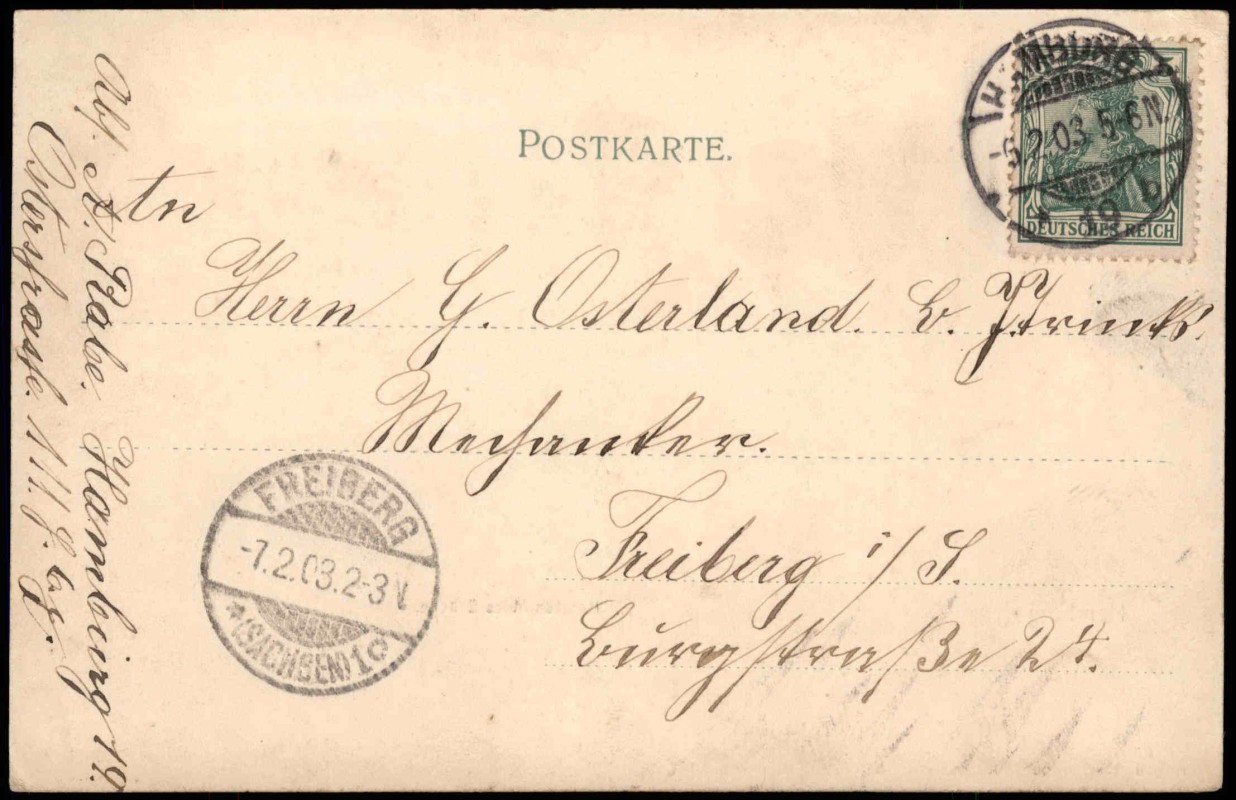 POSTKARTE.
HAMBURG
-6.2.03 5-6N.
* 19 b
5
DEUTSCHES REICH
An
Herrn G. Osterland. b.
Mechanker.
Freiberg i/S.
Burgstraße 24.
FREIBERG
-7.2.03.2-3N.
*(SACHSEN)1c
Abs. A. Rabe. Hamburg 19.
Osterstrasse.